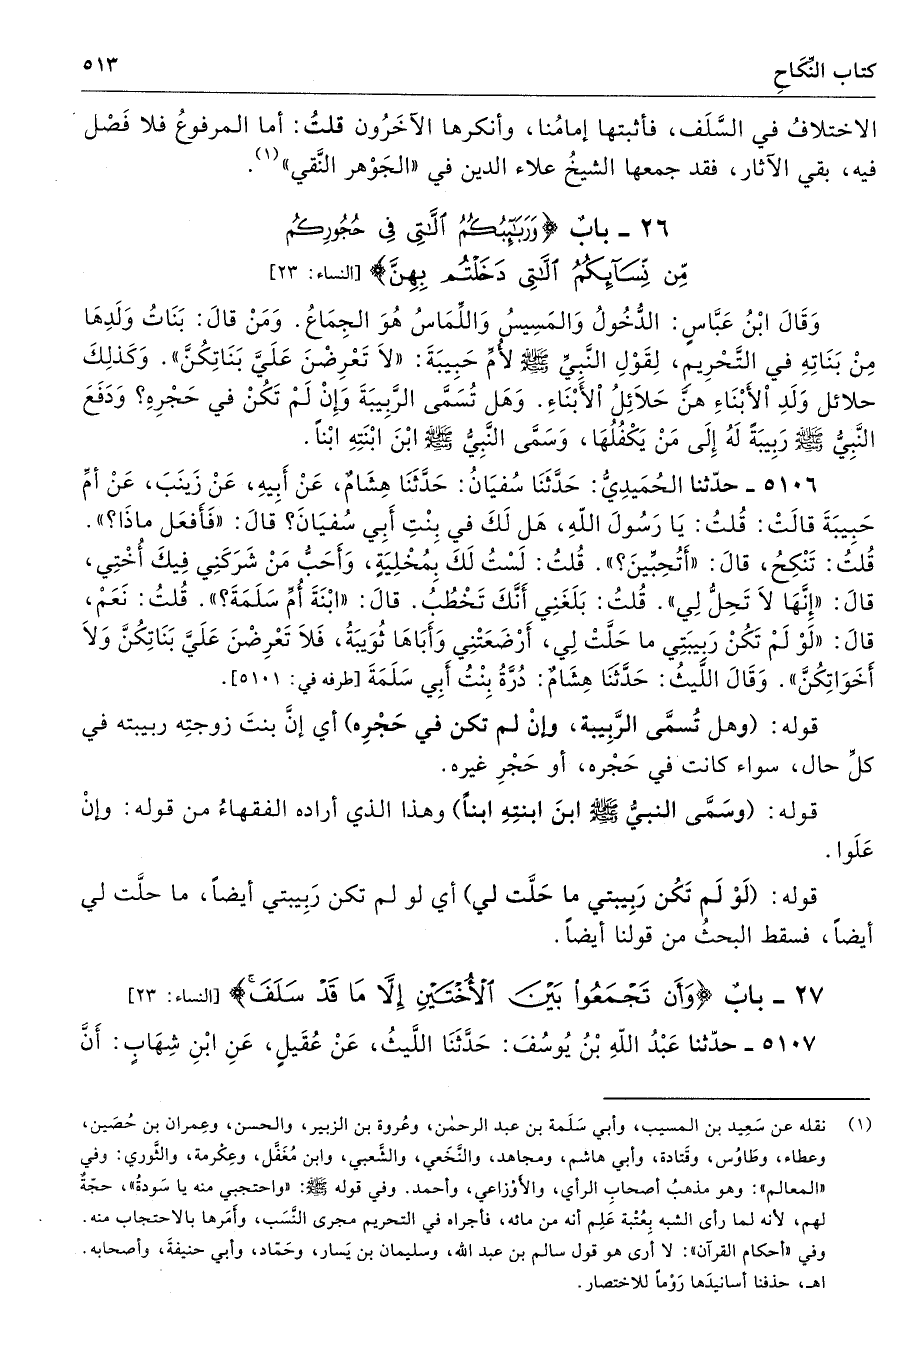 كتاب النِّكَاحِ
٥١٣
الاختلافُ في السَّلَف، فأثبتها إمامُنا، وأنكرها الآخَرُون قلتُ: أما المرفوعُ فلا فَصْل
فيه، بقي الآثار، فقد جمعها الشيخُ علاء الدين في «الجَوْهر النَّقي»(١).
٢٦ ـ بابٌ ﴿وَرَبَٰٓئِبُكُمُ ٱلَّٰتِي فِي حُجُورِكُم
مِّن نِّسَآئِكُمُ ٱلَّٰتِي دَخَلْتُم بِهِنَّ﴾ [النساء: ٢٣]
وَقَالَ ابْنُ عَبَّاسٍ: الدُّخُولُ وَالمَسِيسُ وَاللِّمَاسُ هُوَ الجِمَاعُ. وَمَنْ قالَ: بَنَاتُ وَلَدِهَا
مِنْ بَنَاتِهِ في التَّحْرِيمِ، لِقَوْلِ النَّبِيِّ ﷺ لأُمِّ حَبِيبَةَ: «لاَ تَعْرِضْنَ عَلَيَّ بَنَاتِكُنَّ». وَكَذلِكَ
حلائل وَلَدِ الأَبْنَاءِ هنَّ حَلاَئِلُ الأَبْنَاءِ. وَهَل تُسَمَّى الرَّبِيبَةَ وَإِنْ لَمْ تَكُنْ في حَجْرِهِ؟ وَدَفَعَ
النبيُّ ﷺ رَبِيبَةً لَهُ إِلَى مَنْ يَكْفُلُهَا، وَسَمَّى النَّبِيُّ ﷺ ابْنَ ابْنَتِهِ ابْناً.
٥١٠٦ ـ حدّثنا الحُمَيدِيُّ: حَدَّثَنَا سُفيَانُ: حَدَّثَنَا هِشَامٌ، عَنْ أَبِيهِ، عَنْ زَينَبَ، عَنْ أُمِّ
حَبِيبَةَ قالَتْ: قُلتُ: يَا رَسُولَ اللّهِ، هَل لَكَ في بِنْتِ أَبِي سُفيَانَ؟ قالَ: «فَأَفعَل ماذَا؟».
قُلتُ: تَنْكِحُ، قالَ: «أَتُحِبِّينَ؟». قُلتُ: لَسْتُ لَكَ بِمُخْلِيَةٍ، وَأَحَبُّ مَنْ شَرَكَنِي فِيكَ أُخْتِي،
قالَ: «إِنَّهَا لاَ تَحِلُّ لِي». قُلتُ: بَلَغَنِي أَنَّكَ تَخْطُبُ. قالَ: «ابْنَةَ أُمِّ سَلَمَةَ؟». قُلتُ: نَعَمْ،
قالَ: «لَوْ لَمْ تَكُنْ رَبِيبَتِي ما حَلَّتْ لِي، أَرْضَعَتْنِي وَأَبَاهَا ثُوَيبَةُ، فَلاَ تَعْرِضْنَ عَلَيَّ بَنَاتِكُنَّ وَلاَ
أَخَوَاتِكُنَّ». وَقالَ اللَّيثُ: حَدَّثَنَا هِشَامٌ: دُرَّةُ بِنْتُ أَبِي سَلَمَةَ [طرفه في: ٥١٠١].
قوله: (وهل تُسمَّى الرَّبِيبة، وإنْ لم تكن في حَجْرِه) أي إنَّ بنتَ زوجتِه ربيبته في
كلِّ حال، سواء كانت في حَجْره، أو حَجْرِ غيره.
قوله: (وسَمَّى النبيُّ ﷺ ابنَ ابنتِهِ ابناً) وهذا الذي أراده الفقهاءُ من قوله: وإنْ
عَلَوا.
قوله: (لَوْ لَم تَكُن رَبِيبتي ما حَلَّت لي) أي لو لم تكن رَبِيبتي أيضاً، ما حلَّت لي
أيضاً، فسقط البحثُ من قولنا أيضاً.
٢٧ ـ بابٌ ﴿وَأَن تَجْمَعُوا۟ بَيْنَ ٱلْأُخْتَيْنِ إِلَّا مَا قَدْ سَلَفَ﴾ [النساء: ٢٣]
٥١٠٧ ـ حدّثنا عَبْدُ اللّهِ بْنُ يُوسُفَ: حَدَّثَنَا اللَّيثُ، عَنْ عُقَيلٍ، عَنِ ابْنِ شِهَابٍ: أَنَّ
(١) نقله عن سَعِيد بن المسيب، وأبي سَلَمة بن عبد الرحمٰن، وعُروة بن الزبير، والحسن، وعِمران بن حُصَين،
وعطاء، وطَاوُس، وقَتادة، وأبي هاشم، ومجاهد، والنَّخَعي، والشَّعبي، وابن مُغَفَّل، وعِكْرمة، والثَّوري: وفي
«المعالم»: وهو مذهبُ أصحابِ الرأي، والأَوْزاعي، وأحمد. وفي قوله ﷺ: «واحتجبي منه يا سَودةُ»، حجّةٌ
لهم، لأنه لما رأى الشبه بِعُتْبة عَلِم أنه من مائه، فأجراه في التحريم مجرى النَّسَب، وأَمَرها بالاحتجاب منه.
وفي «أحكام القرآن»: لا أرى هو قول سالم بن عبد الله، وسليمان بن يَسار، وحَمّاد، وأبي حنيفةَ، وأصحابه.
اهـ، حذفنا أسانيدَها رَوْماً للاختصار.